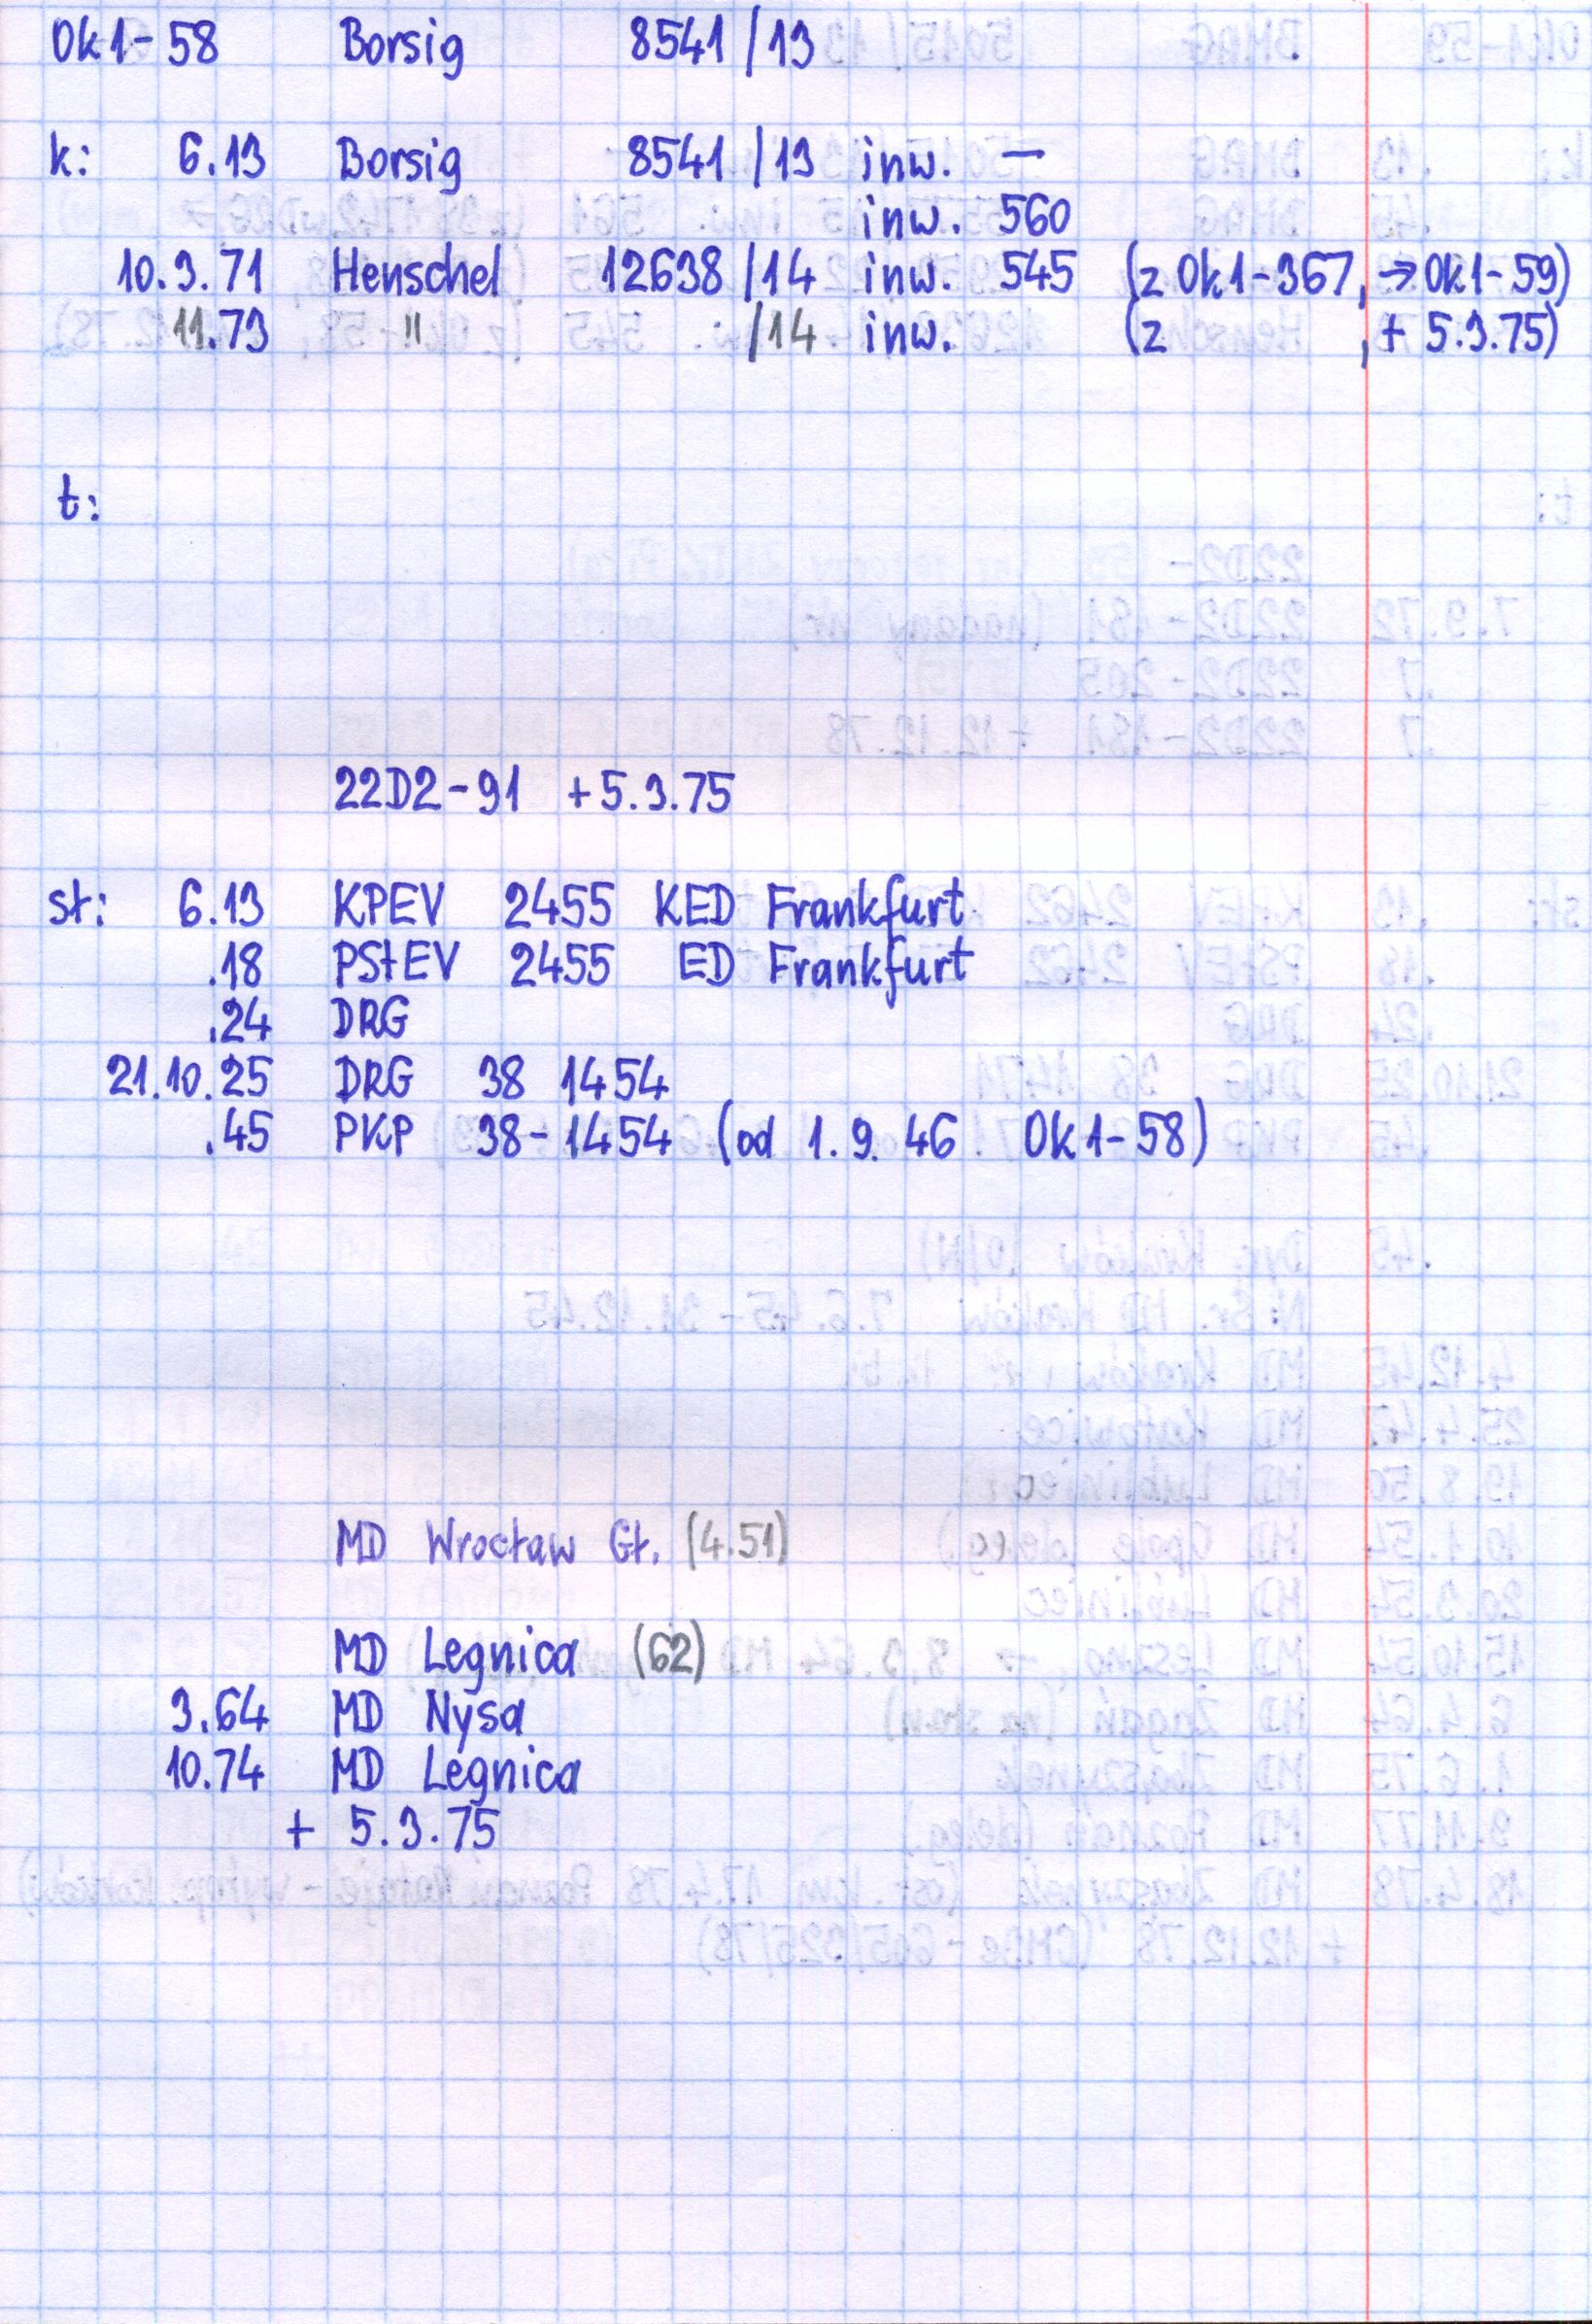 Ok1-58 Borsig 8541/13
k: 6.13 Borsig 8541/13 inw. —
inw. 560
10.3.71 Henschel 12638/14 inw. 545 (z Ok1-367, → Ok1-59)
11.73 " /14 inw. (z , + 5.3.75)
t:
22D2-91 +5.3.75
st: 6.13 KPEV 2455 KED Frankfurt
.18 PStEV 2455 ED Frankfurt
.24 DRG
21.10.25 DRG 38 1454
.45 PKP 38-1454 (od 1.9.46 Ok1-58)
MD Wrocław Gł. (4.51)
MD Legnica (62)
3.64 MD Nysa
10.74 MD Legnica
+ 5.3.75